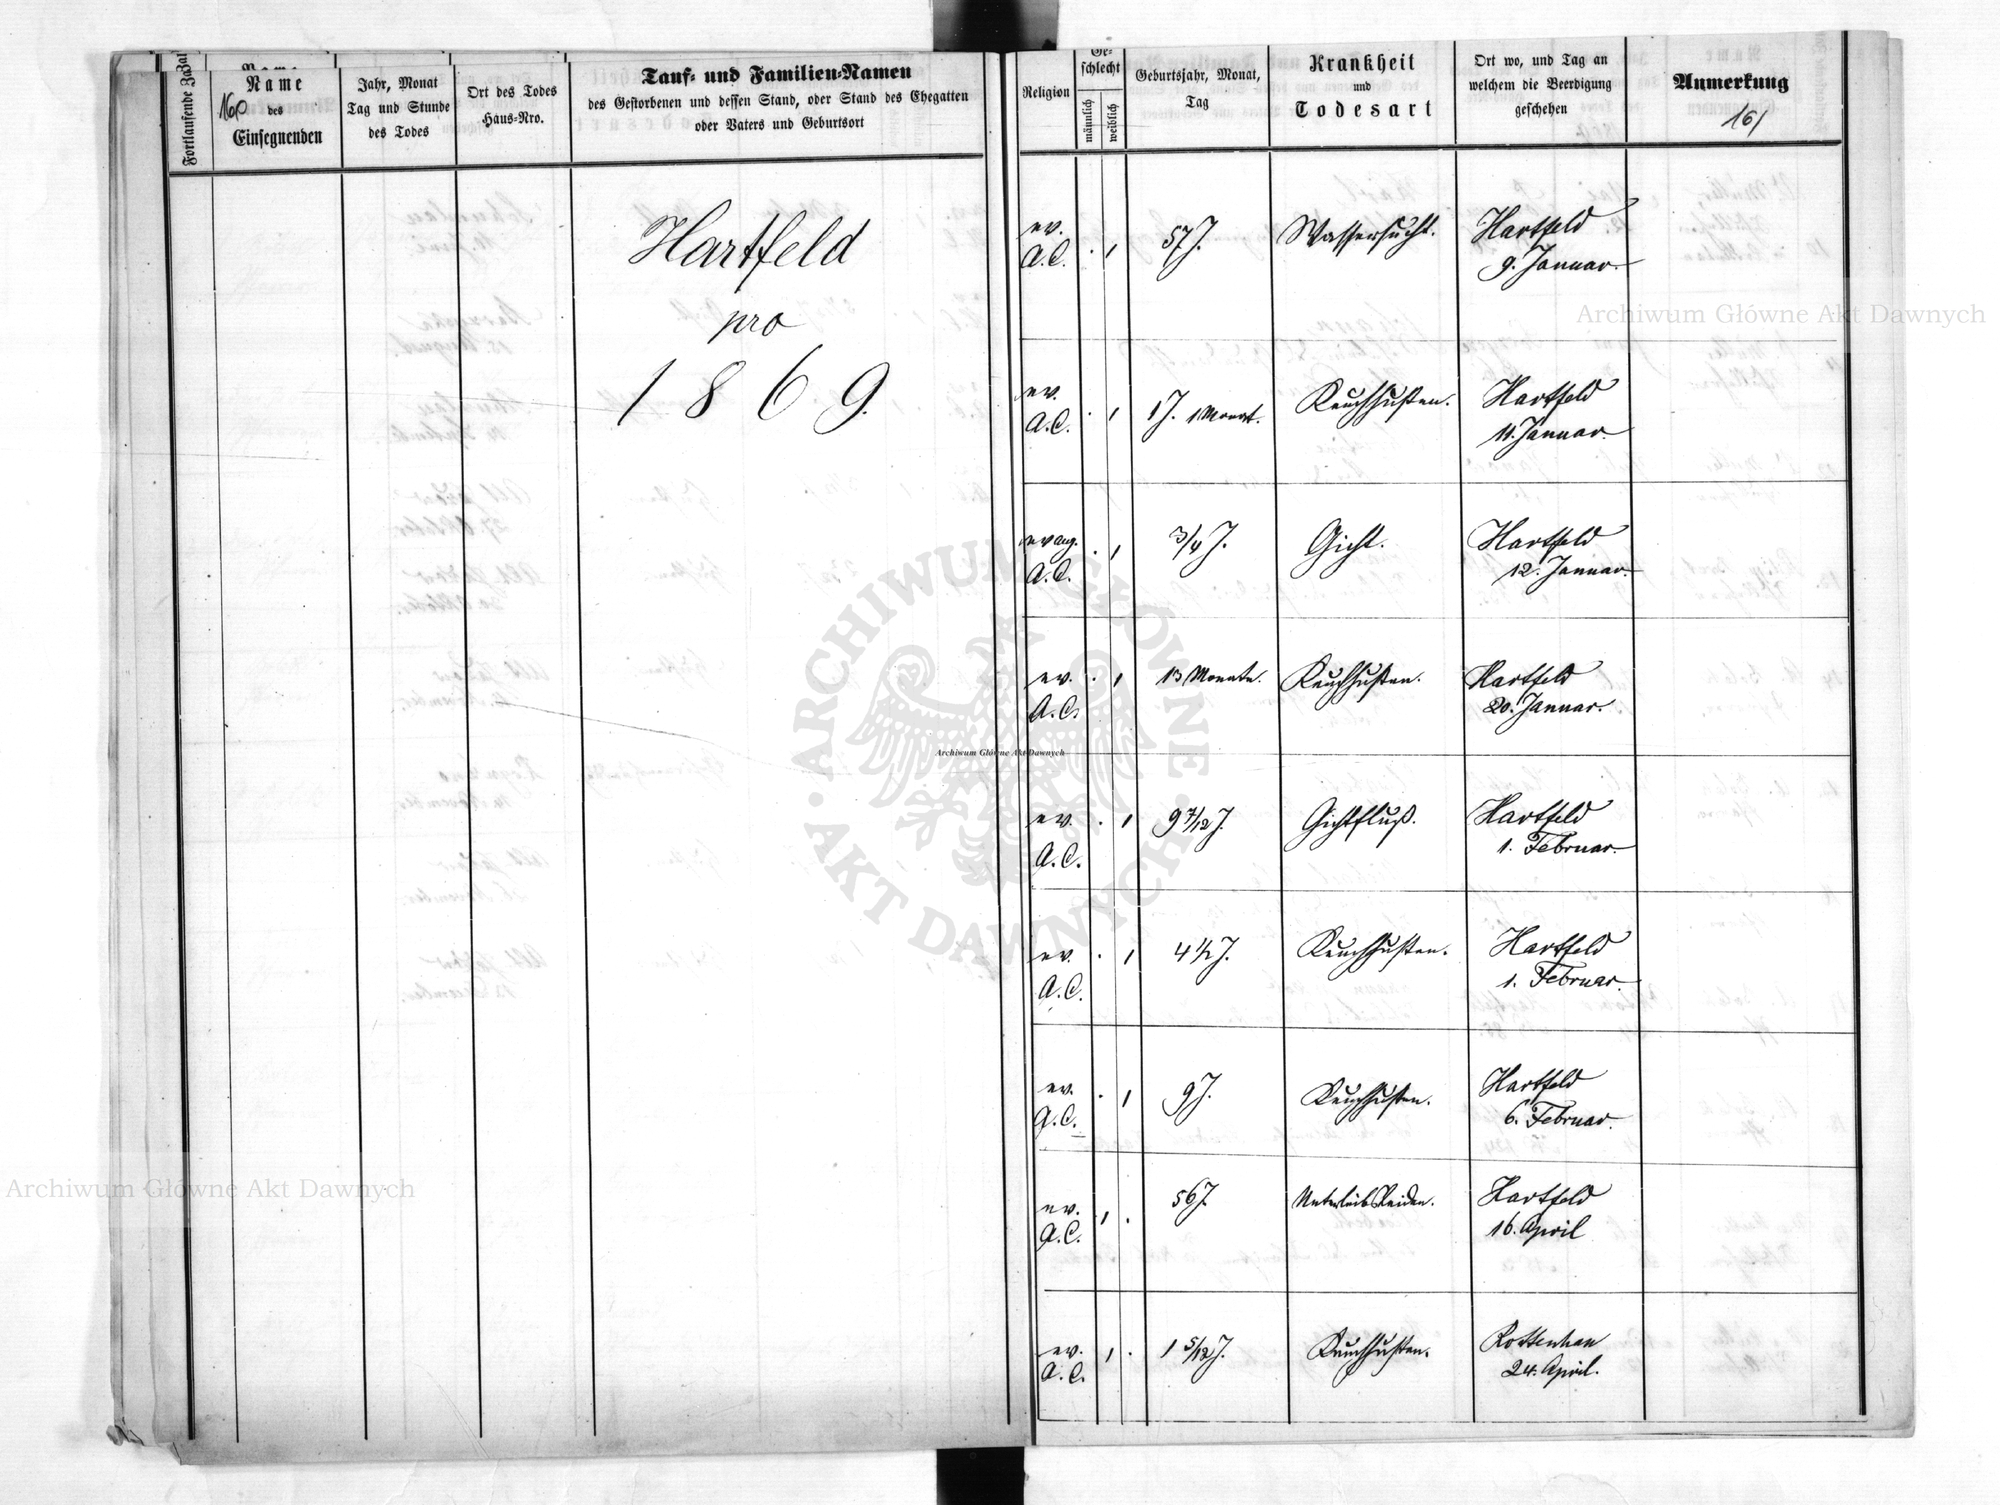 Fortlaufende Zahl
160
Name
des
Einsegnenden
Jahr, Monat
Tag und Stunde
des Todes
Ort des Todes
Haus-Nro.
Tauf- und Familien-Namen
des Gestorbenen und dessen Stand, oder Stand des Ehegatten
oder Vaters und Geburtsort
Hartfeld
pro
1869.
Religion
Ge-
schlecht
männlich
weiblich
Geburtsjahr, Monat,
Tag
Krankheit
und
Todesart
Ort wo, und Tag an
welchem die Beerdigung
geschehen
Anmerkung
161
ev.
A.C. . 1 57 J. Wassersucht. Hartfeld
9. Januar.
ev.
A.C. . 1 1 J. 1 Monat. Keuchhusten. Hartfeld
11. Januar.
evang.
A.C. . 1 3/4 J. Gicht. Hartfeld
12. Januar.
ev.
A.C. . 1 13 Monate. Keuchhusten. Hartfeld
20. Januar.
ev.
A.C. . 1 9 7/12 J. Gichtfluß. Hartfeld
1. Februar.
ev.
A.C. . 1 4 1/2 J. Keuchhusten. Hartfeld
1. Februar.
ev.
A.C. . 1 9 J. Keuchhusten. Hartfeld
6. Februar.
ev.
A.C. 1 . 56 J. Unterleibsleiden. Hartfeld
16. April
ev.
A.C. 1 . 1 5/12 J. Keuchhusten. Rottenhan
24. April.
Archiwum Główne Akt Dawnych
ARCHIWUM GŁÓWNE · AKT DAWNYCH ·
Archiwum Główne Akt Dawnych
Archiwum Główne Akt Dawnych